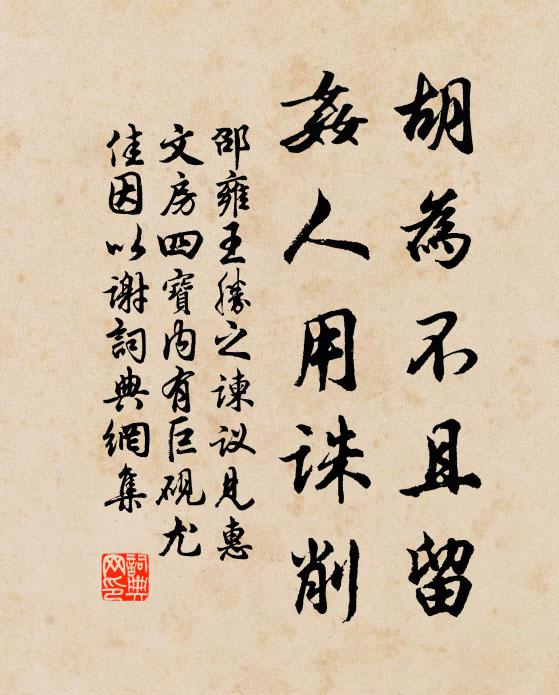 胡為不且留
姦人用誅削
邵雍王勝之諫议見惠
文房四寶内有巨硯尤
佳因以謝詞典網集
詞典
网印